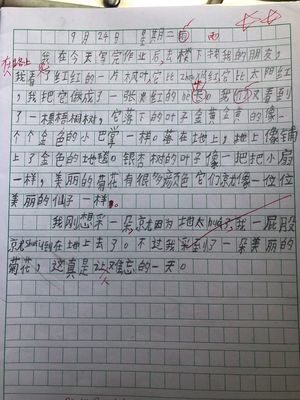 9月24日 星期二 雨
我在今天写完作业后,去楼下找我的朋友,
在路上
我看了红红的一片枫叶,它比 还红它比太阳红
,我把它做成了一张 红的 。我 又看到
了一棵梧桐树,它落下的叶子金黄金黄的像一
个个金色的小巴掌一样。落在地上,地上像铺
上了金色的地毯。银杏树的叶子像一把把小扇
一样,美丽的菊花有很多颜色它们就像一位位
美丽的仙子一样。
我刚想采一朵,京尤因为地太huá了,我一屁股
京尤shuāi倒在地上去了。不过我采到了一朵美丽的
菊花,这真是让难忘的一天。
人